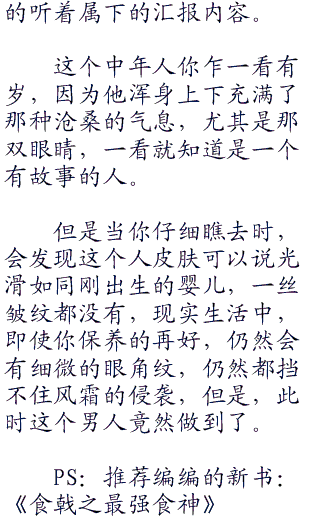 的听着属下的汇报内容。
这个中年人你乍一看有
岁，因为他浑身上下充满了
那种沧桑的气息，尤其是那
双眼睛，一看就知道是一个
有故事的人。
但是当你仔细瞧去时，
会发现这个人皮肤可以说光
滑如同刚出生的婴儿，一丝
皱纹都没有，现实生活中，
即使你保养的再好，仍然会
有细微的眼角纹，仍然都挡
不住风霜的侵袭，但是，此
时这个男人竟然做到了。
PS：推荐编编的新书：
《食戟之最强食神》